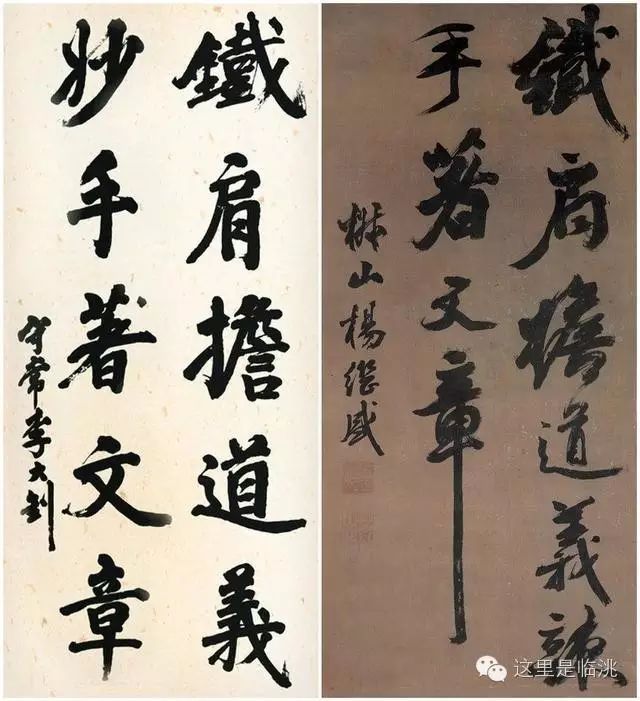 鐵肩擔道義
妙手著文章
守常李大釗
鐵肩擔道義辣
手著文章
椒山楊繼盛
这里是临洮